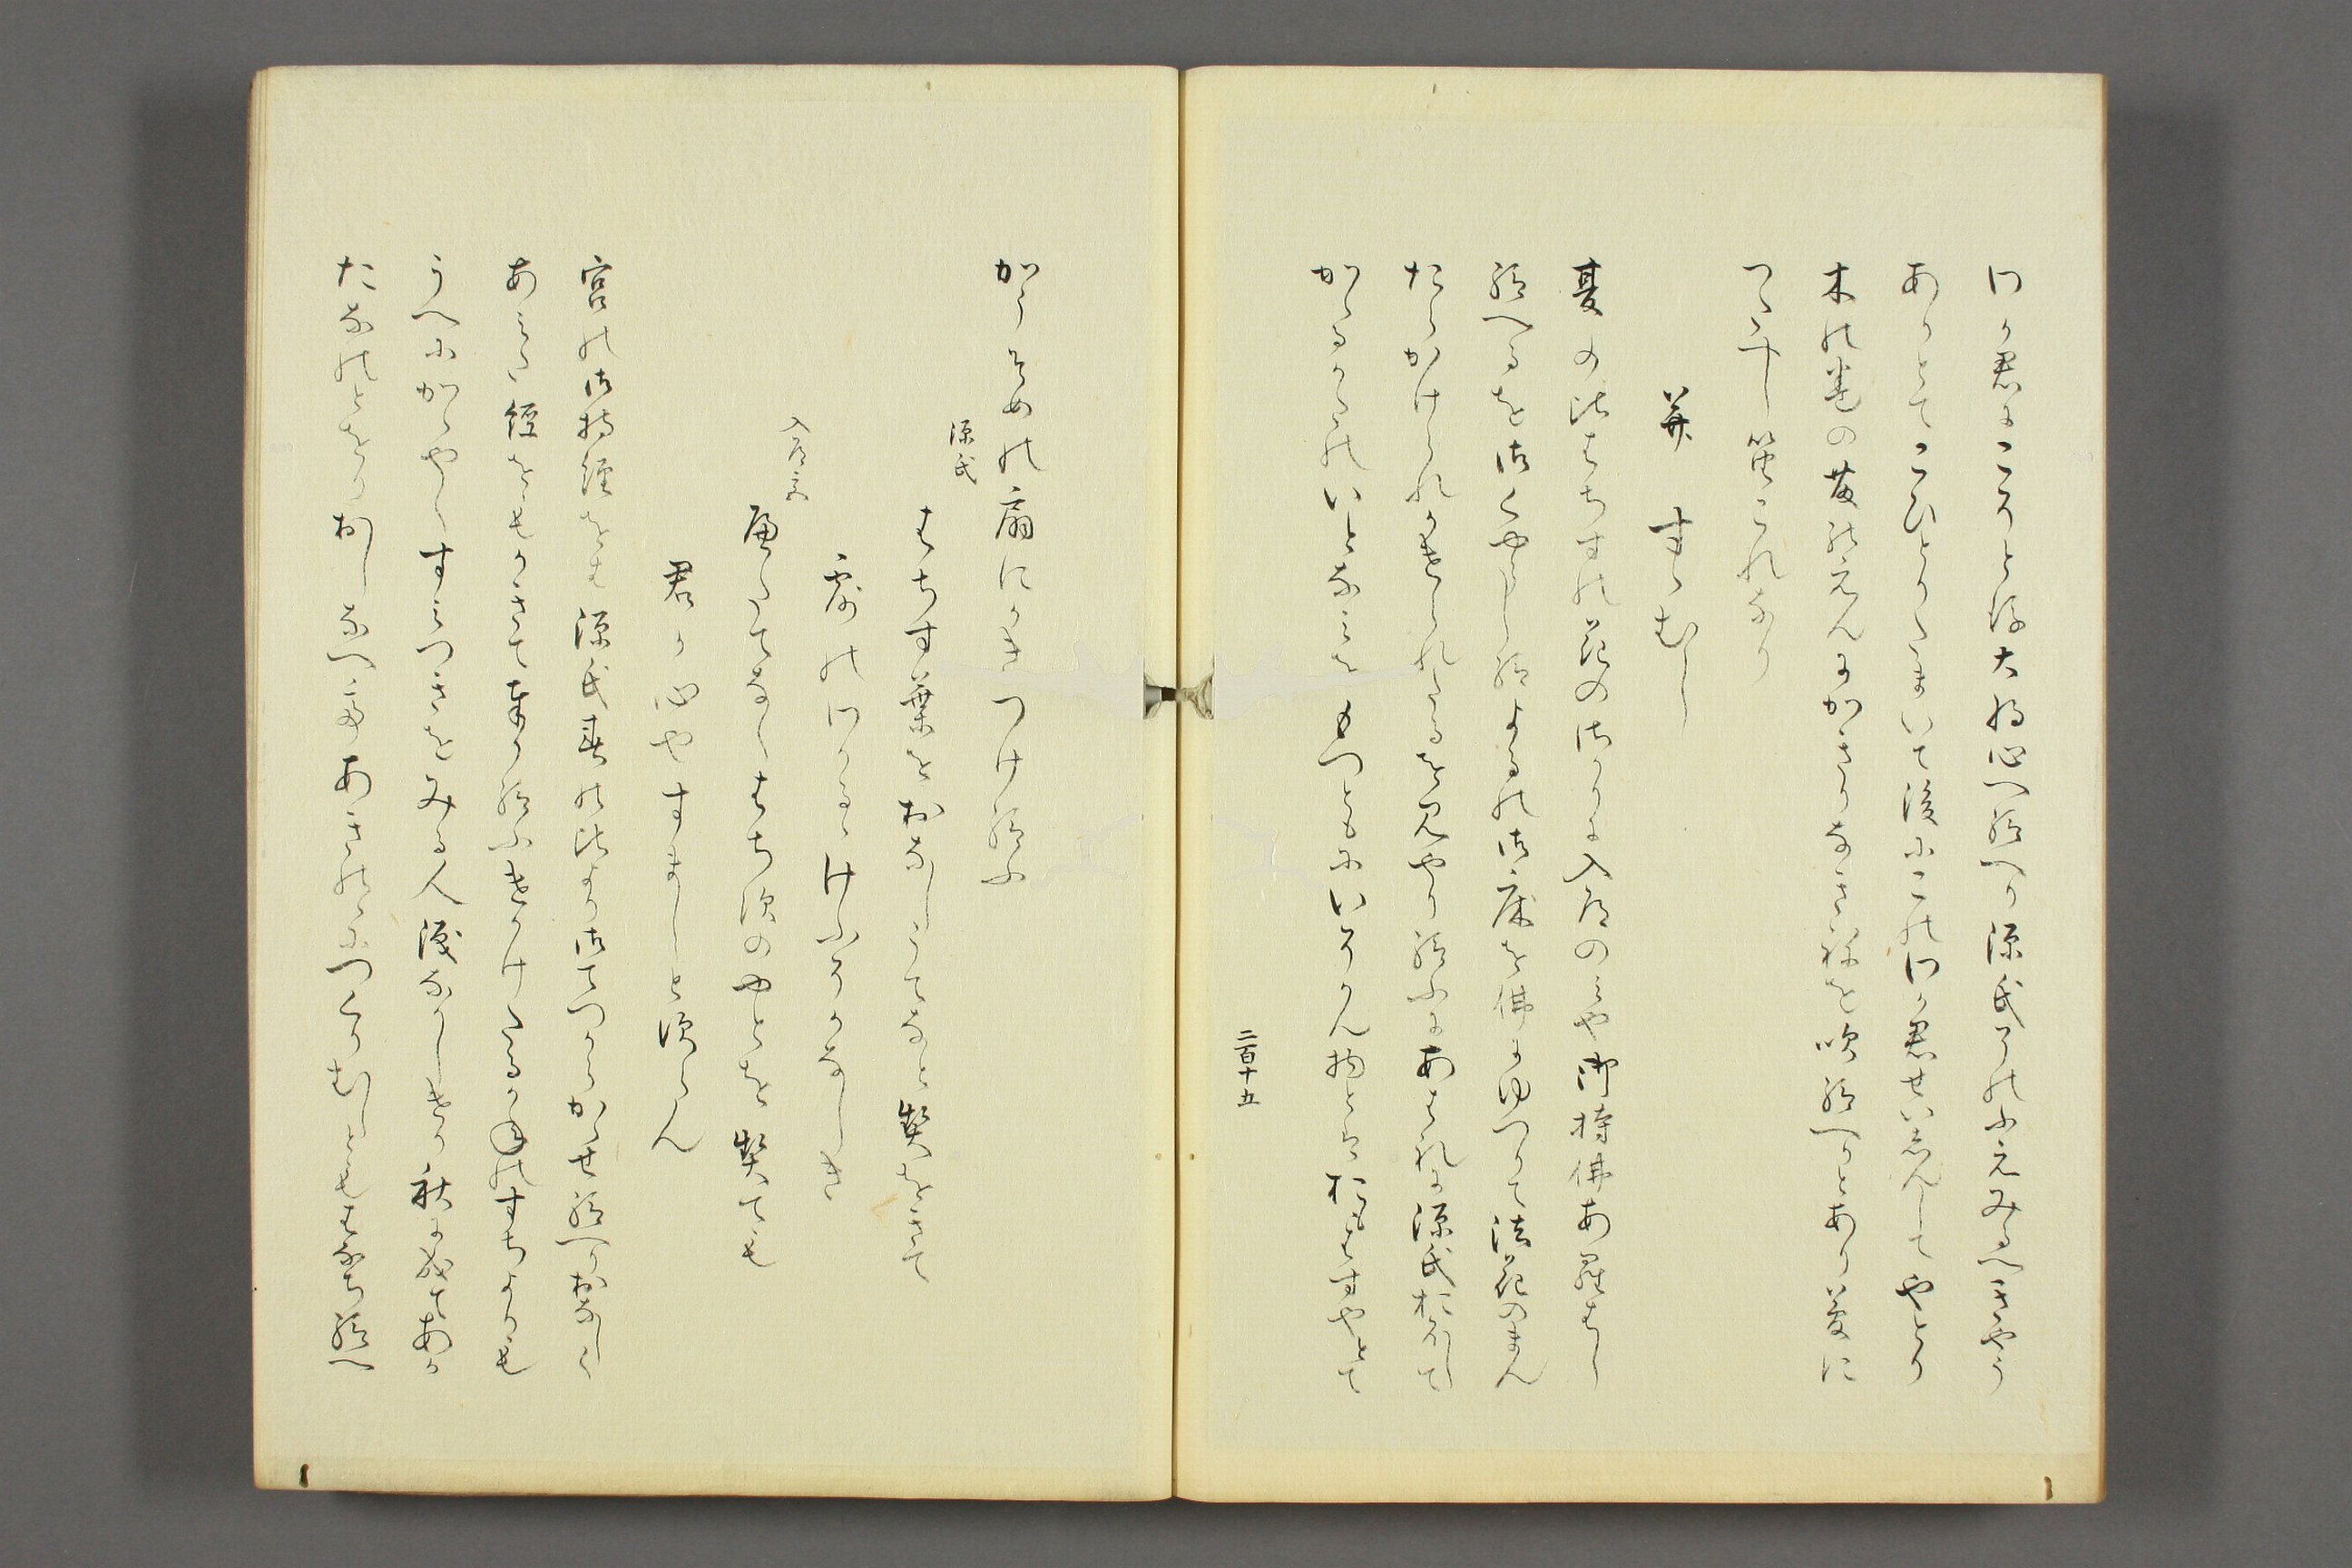 わか君にころと好大将心へ給へり源氏そのふえみるへきやう
ありとてこひとりたまいて後にこのわか君せいしんしてやとり
木の巻の藤のえんにかきりなきねを吹給へりとあり夢に
つたへし笛これなり
并 すゝむし
夏の比はちすの花のさかりに入道のみや御持佛あらはし
給へるを御くやうし給よるの御床を佛にゆつりて法花のまん
たらかけられかさられたるを見やり給ふにあはれに源氏おほして
かゝるかたのいとなみをもつともにいそかん物とはおもはすやとて
二百十五
かうそめの扇にかきつけ給ふ
源氏
はちす葉をおなしうてなと契をきて
露のわかるゝけふそかなしき
入道宮
へたてなくはちすのやとを契ても
君か心やすましとすらん
宮の御持経をは源氏春の比より御てつからかゝせ給へりおなしく
あみた経をもかきて奉り給ふけかけたるかねのすちよりも
うへにかゝやくすみつきをみる人涙なかしけり秋に成てあか
たなのとをりおしなへて野あきのゝにつくりむしともはなち給へ